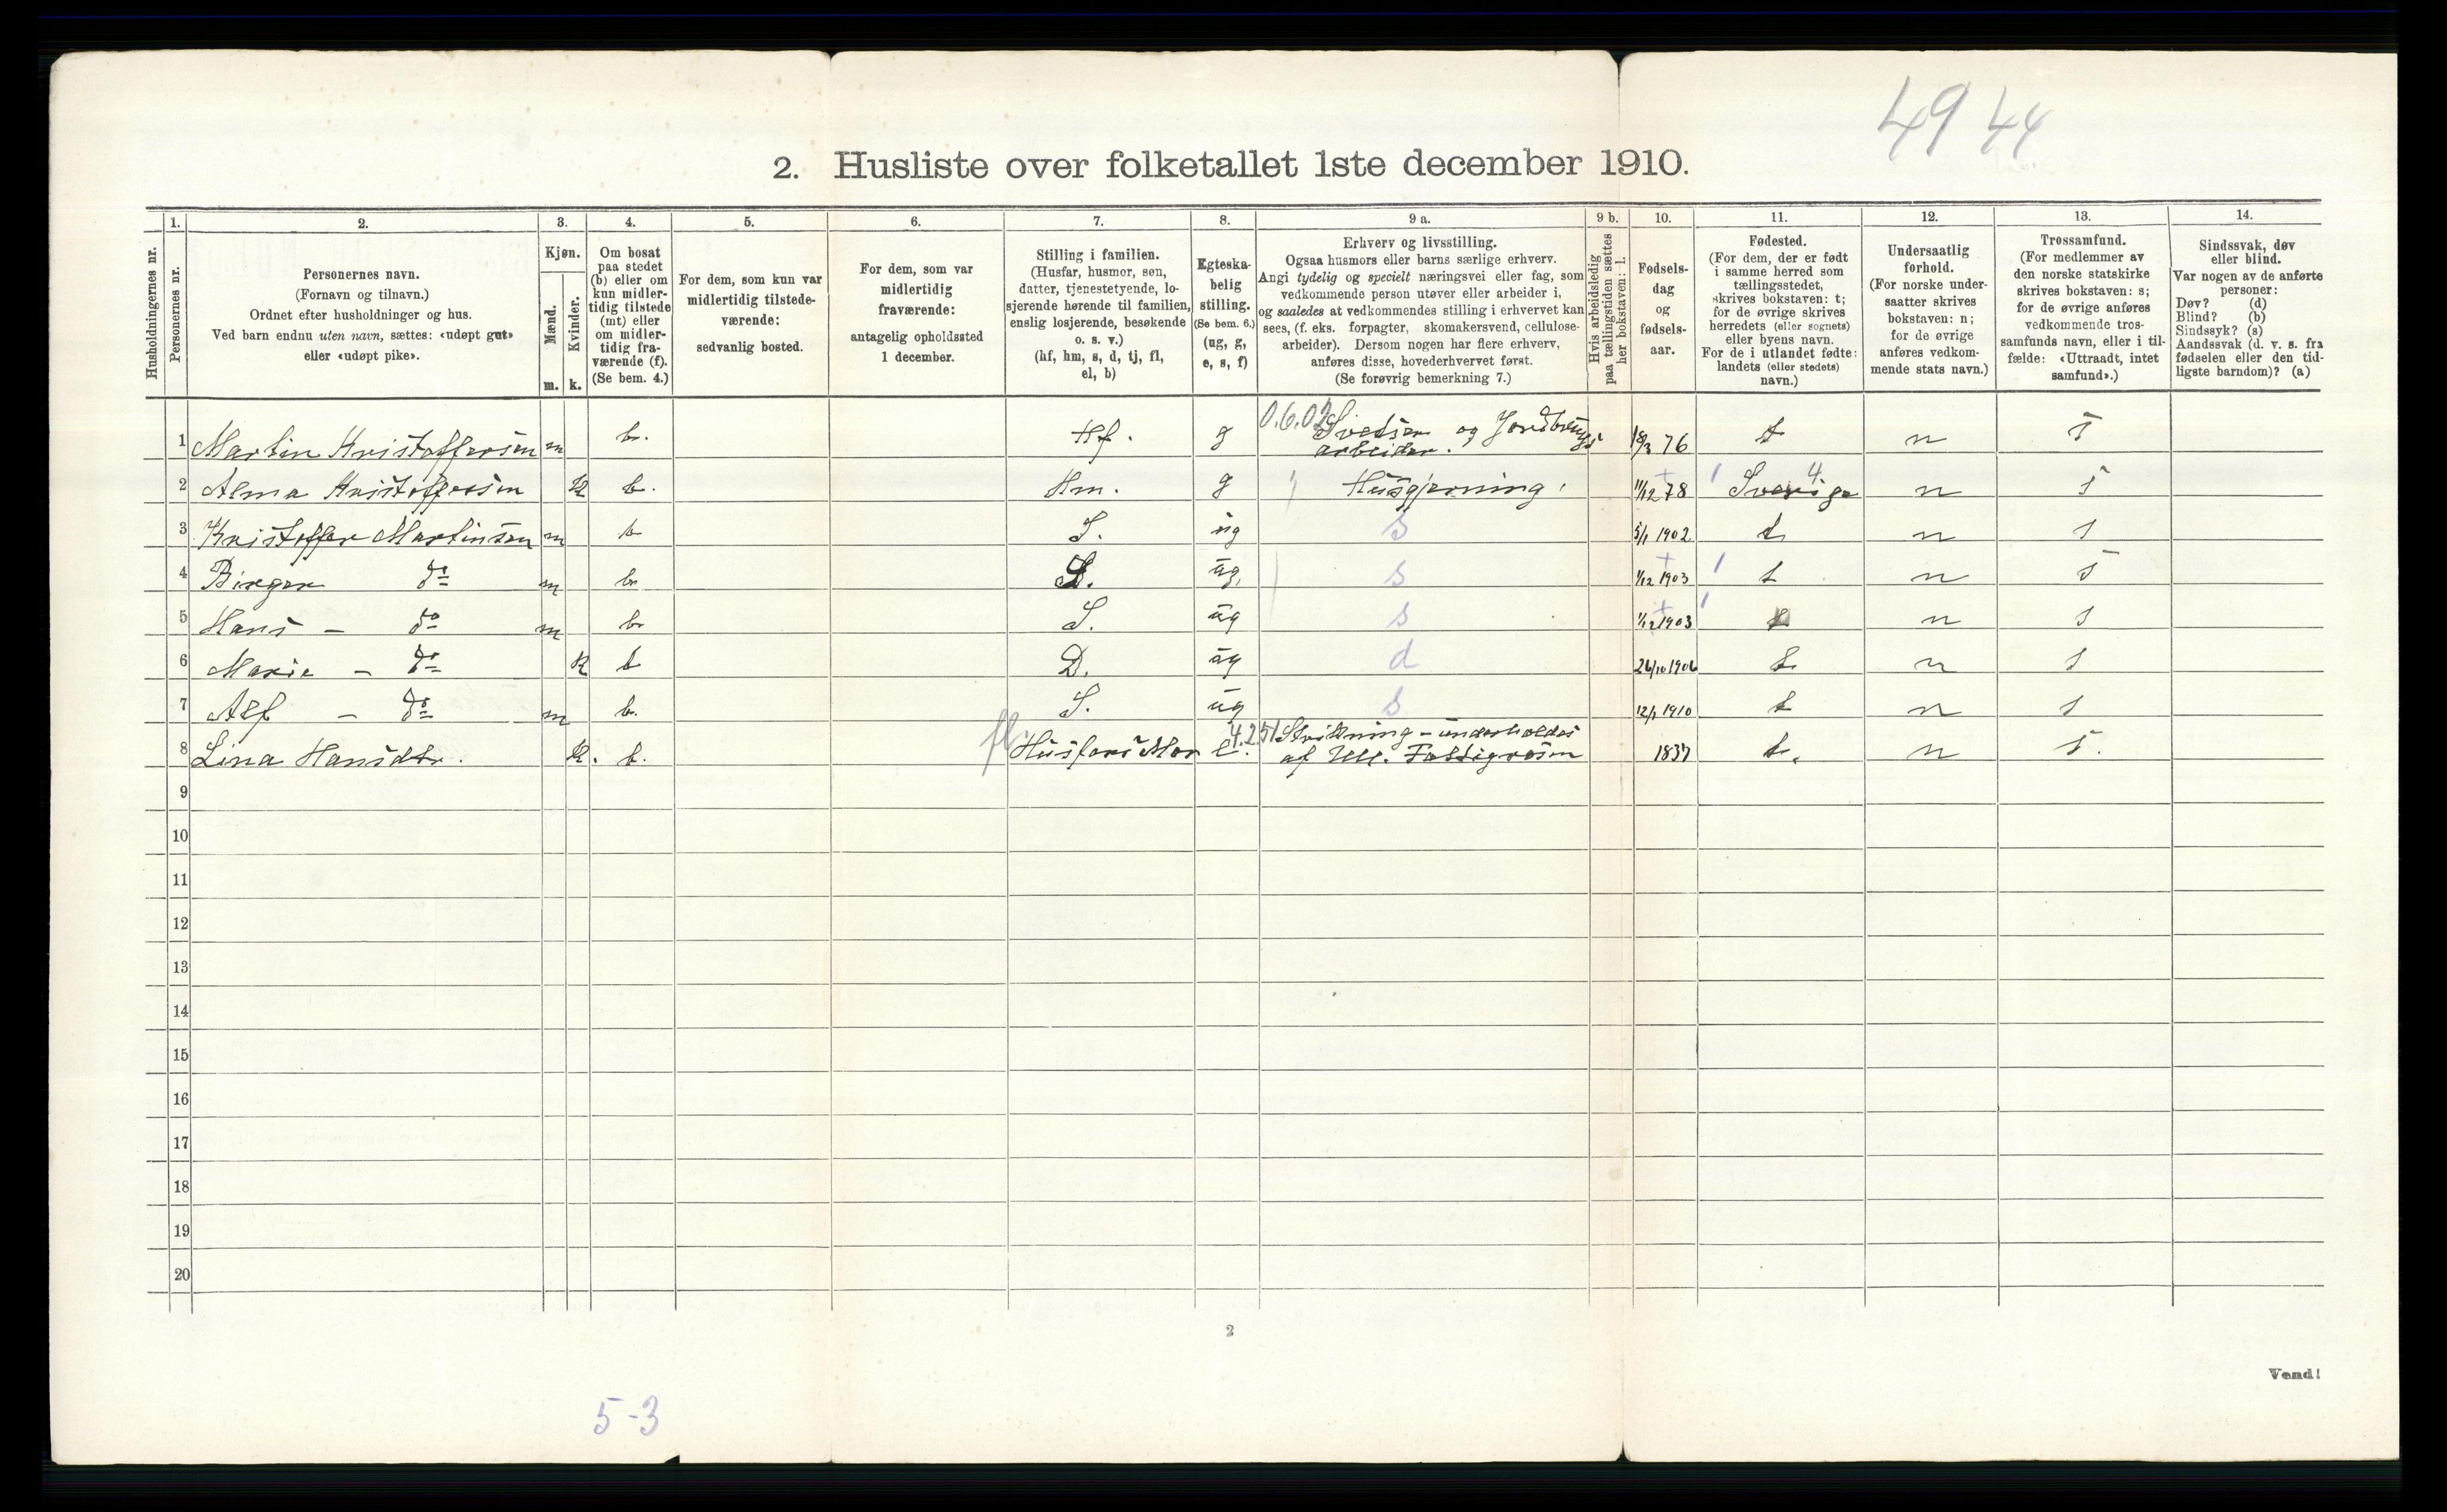 49 44
2. Husliste over folketallet 1ste december 1910.
Husholdningernes nr.
1.
Personernes nr.
2.
Personernes navn.
(Fornavn og tilnavn.)
Ordnet efter husholdninger og hus.
Ved barn endnu uten navn, sættes: «udøpt gut»
eller «udøpt pike».
3.
Kjøn.
Mænd.
Kvinder.
m. k.
4.
Om bosat
paa stedet
(b) eller om
kun midler-
tidig tilstede
(mt) eller
om midler-
tidig fra-
værende (f).
(Se bem. 4.)
5.
For dem, som kun var
midlertidig tilstede-
værende:
sedvanlig bosted.
6.
For dem, som var
midlertidig
fraværende:
antagelig opholdssted
1 december.
7.
Stilling i familien.
(Husfar, husmor, søn,
datter, tjenestetyende, lo-
sjerende hørende til familien,
enslig losjerende, besøkende
o. s. v.)
(hf, hm, s, d, tj, fl,
el, b)
8.
Egteska-
belig
stilling.
(Se bem. 6.)
(ug, g,
e, s, f)
9 a.
Erhverv og livsstilling.
Ogsaa husmors eller barns særlige erhverv.
Angi tydelig og specielt næringsvei eller fag, som
vedkommende person utøver eller arbeider i,
og saaledes at vedkommendes stilling i erhvervet kan
sees, (f. eks. forpagter, skomakersvend, cellulose-
arbeider). Dersom nogen har flere erhverv,
anføres disse, hovederhvervet først.
(Se forøvrig bemerkning 7.)
9 b.
Hvis arbeidsledig
paa tællingstiden sættes
her bokstaven: l.
10.
Fødsels-
dag
og
fødsels-
aar.
11.
Fødested.
(For dem, der er født
i samme herred som
tællingsstedet,
skrives bokstaven: t;
for de øvrige skrives
herredets (eller sognets)
eller byens navn.
For de i utlandet fødte:
landets (eller stedets)
navn.)
12.
Undersaatlig
forhold.
(For norske under-
saatter skrives
bokstaven: n;
for de øvrige
anføres vedkom-
mende stats navn.)
13.
Trossamfund.
(For medlemmer av
den norske statskirke
skrives bokstaven: s;
for de øvrige anføres
vedkommende tros-
samfunds navn, eller i til-
fælde: «Uttraadt, intet
samfund».)
14.
Sindssvak, døv
eller blind.
Var nogen av de anførte
personer:
Døv? (d)
Blind? (b)
Sindssyk? (s)
Aandssvak (d. v. s. fra
fødselen eller den tid-
ligste barndom)? (a)
1 Martin Kristoffersen m b. Hf. g 0.6.02 og Jordbrugs arbeider. 18/3 76 t n s
2 Alma Kristoffersen k b. Hm. g Husgjerning. 11/12 78 Sverige 4 n s
3 Kristoffer Martinsen m b S. ug s 5/1 1902 t n s
4 Birger do m b. S. ug. s 1/12 1903 t n s
5 Hans - do m b. S. ug s 1/12 1903 t n s
6 Marie - do k b D. ug d 26/10 1906 t n s
7 Alf - do m b. S. ug s 12/1 1910 t n s
8 Lina Hansdtr. k. b. fl Husfars Mor e. 4.251 Strikning - underholdes af Ull. Fattigvæsen 1837 t. n s.
9
10
11
12
13
14
15
16
17
18
19
20
2
Vend!
5-3